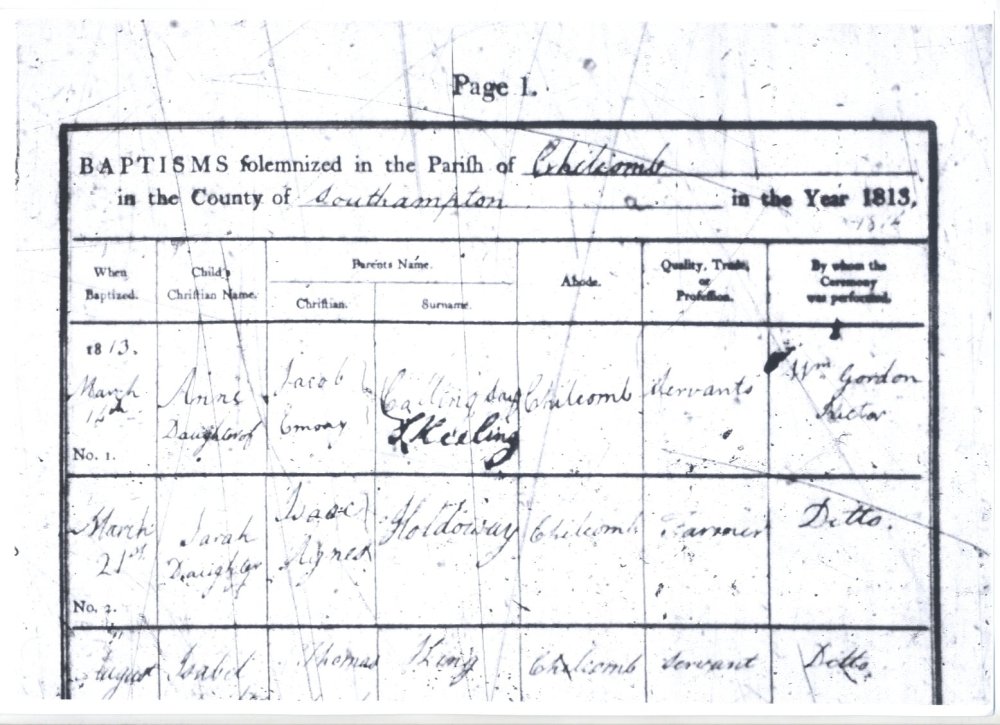 Page 1.
BAPTISMS ſolemnized in the Pariſh of Chilcomb
in the County of Southampton in the Year 1813.
When Baptized.
Child's Chriſtian Name.
Parents Name.
Chriſtian.
Surname.
Abode.
Quality, Trade, or Profeſſion.
By whom the Ceremony was performed.
1813.
March
No. 1.
Anne
Daughter of
Jacob
Catling say
Keeling
Chilcomb
Servants
Wm Gordon
Rector
March
21st
No. 2.
Sarah
Daughter
Isaac
Agnes
Holdoway
Chilcomb
Farmer
Ditto.
August
Isabel
Thomas
King
Chilcomb
Servant
Ditto